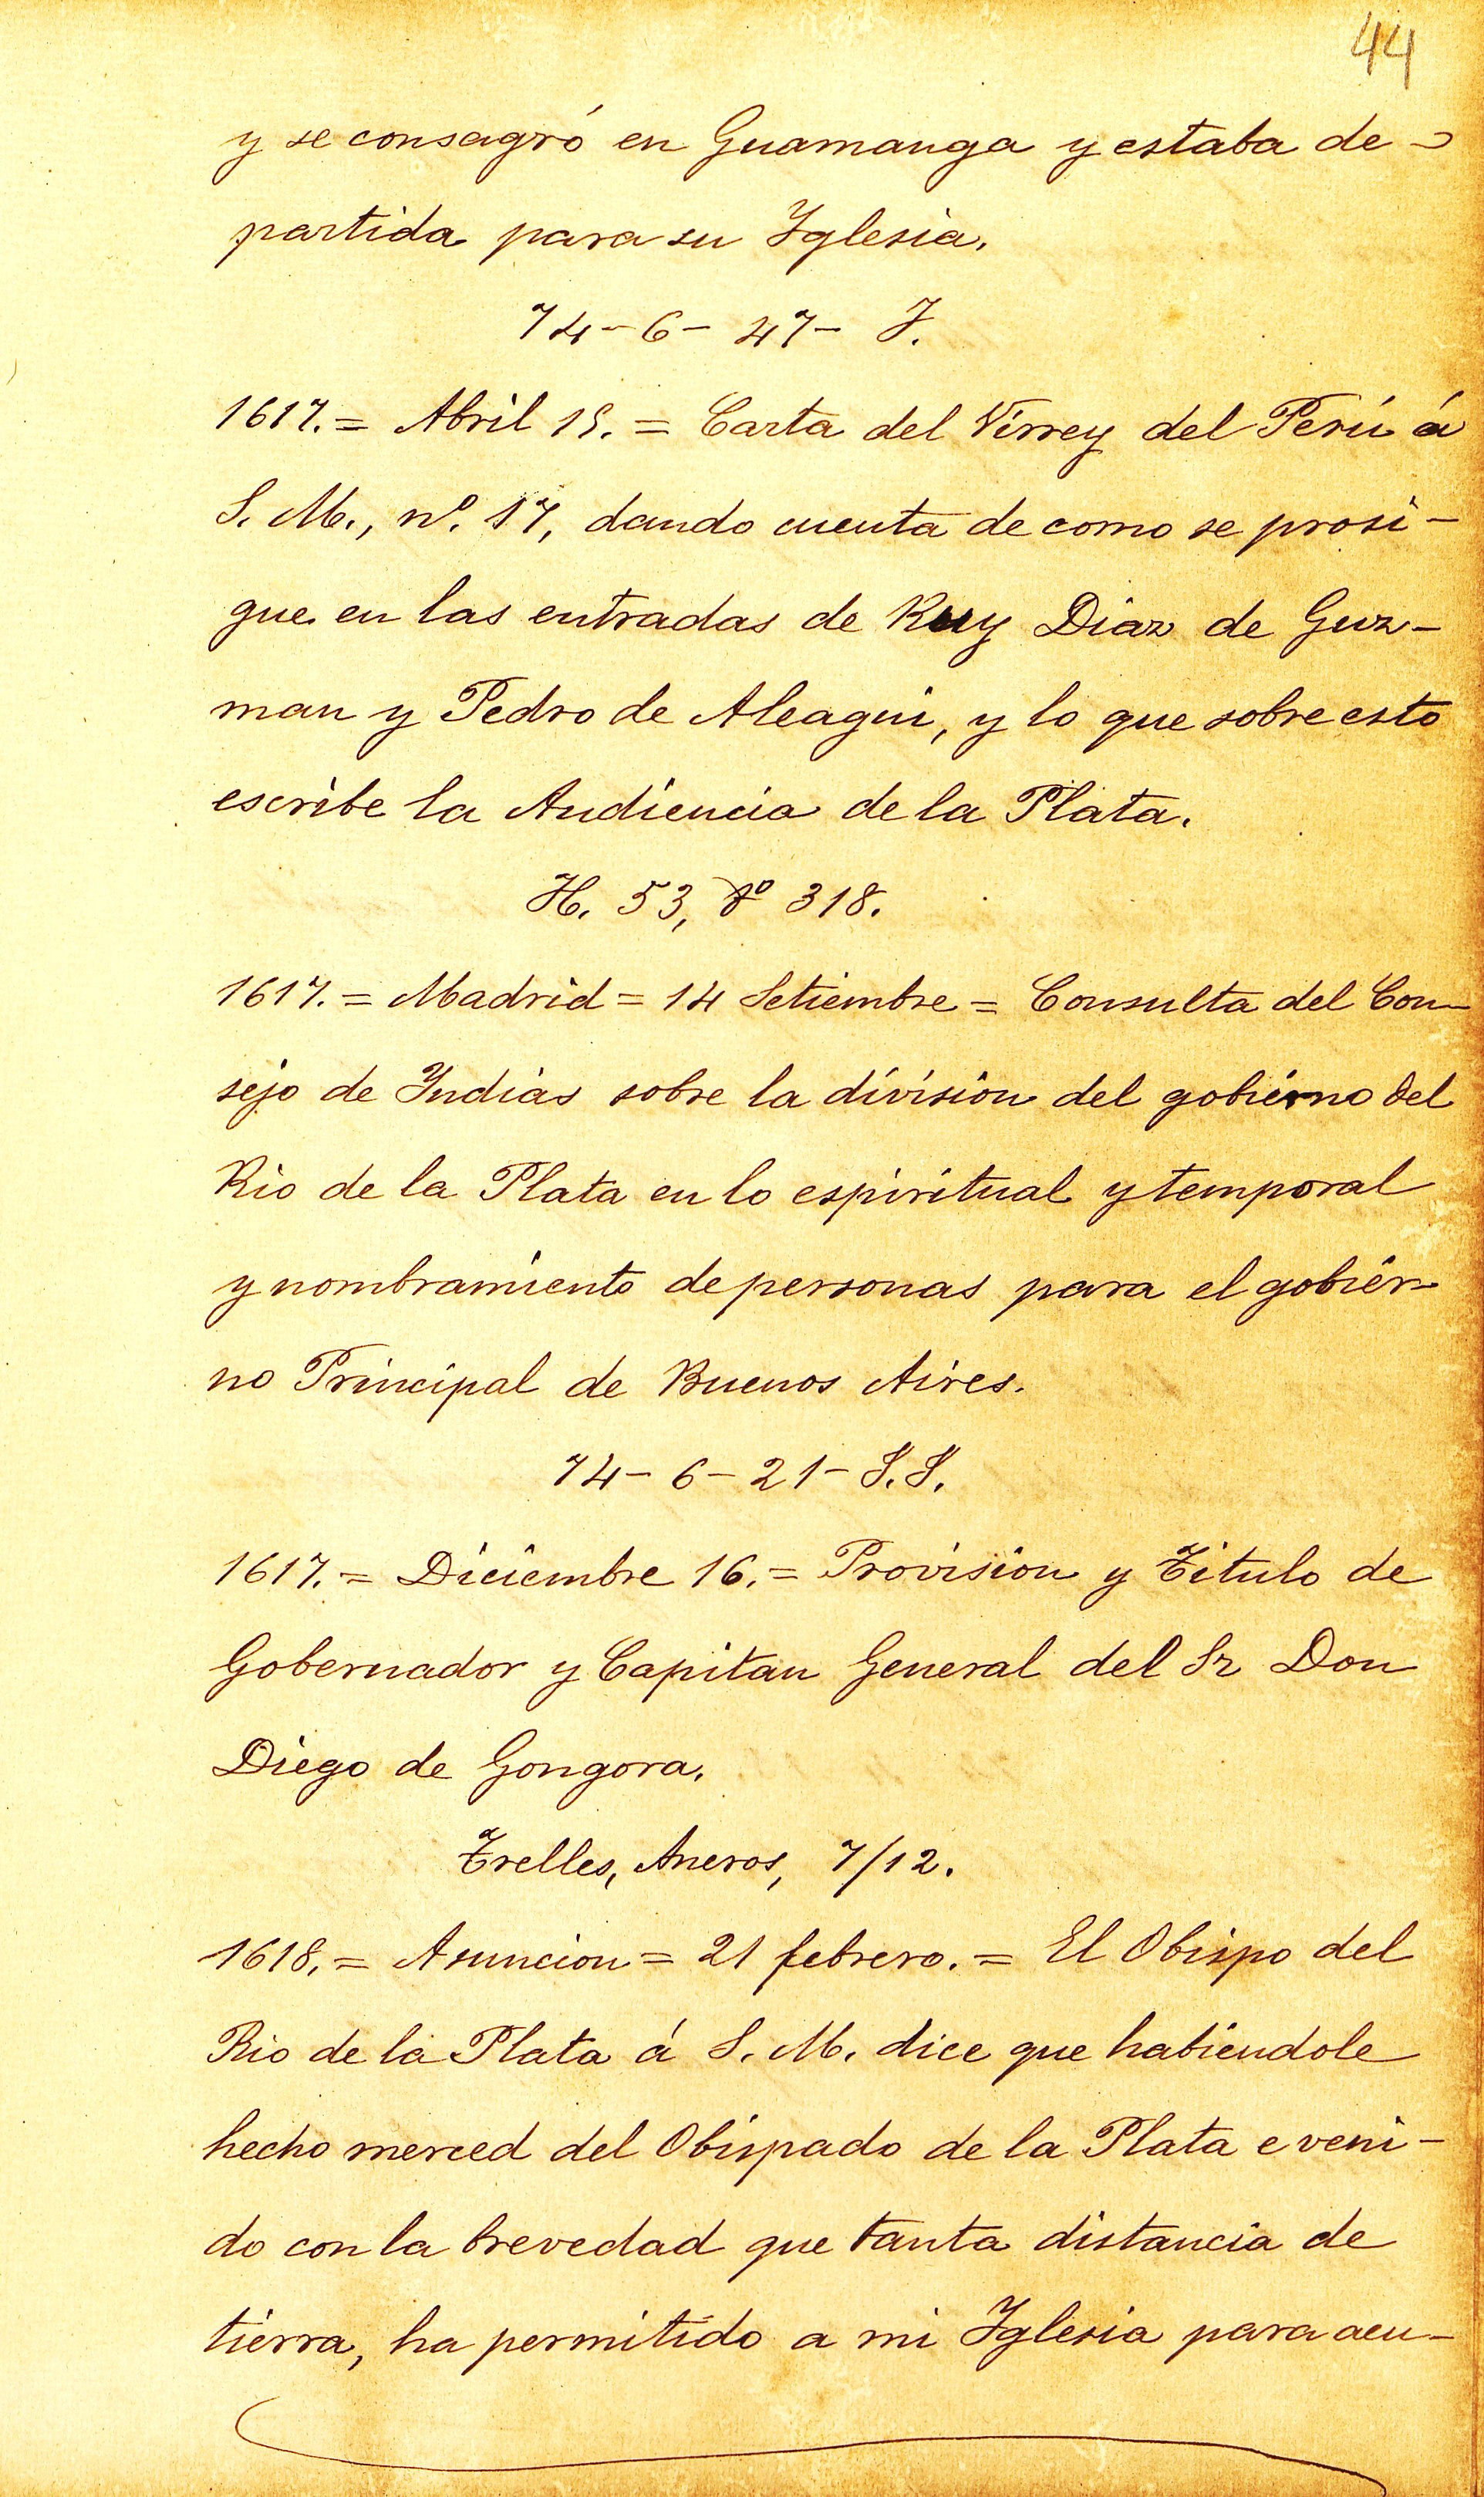 44
y se consagró en Guamanga y estaba de
partida para su Yglesia.
74-6-47- J.
1617.= Abril 15.= Carta del Virrey del Perú á
S. M., nº. 17, dando cuenta de como se prosi-
gue en las entradas de Ruy Diaz de Guz-
man y Pedro de Aleagui, y lo que sobre esto
escribe la Audiencia de la Plata.
H. 53, fº 318.
1617.= Madrid = 14 Setiembre = Consulta del Con-
sejo de Yndias sobre la división del gobierno del
Rio de la Plata en lo espiritual y temporal
y nombramiento de personas para el gobier-
no Principal de Buenos Aires.
74-6-21- S.S.
1617.= Diciembre 16.= Provision y Titulo de
Gobernador y Capitan General del Sr Don
Diego de Gongora.
Trelles, Anexos, 7/12.
1618.= Asuncion = 21 febrero.= El Obispo del
Rio de la Plata á S. M. dice que habiendole
hecho merced del Obispado de la Plata e veni-
do con la brevedad que tanta distancia de
tierra, ha permitido a mi Yglesia para acu-